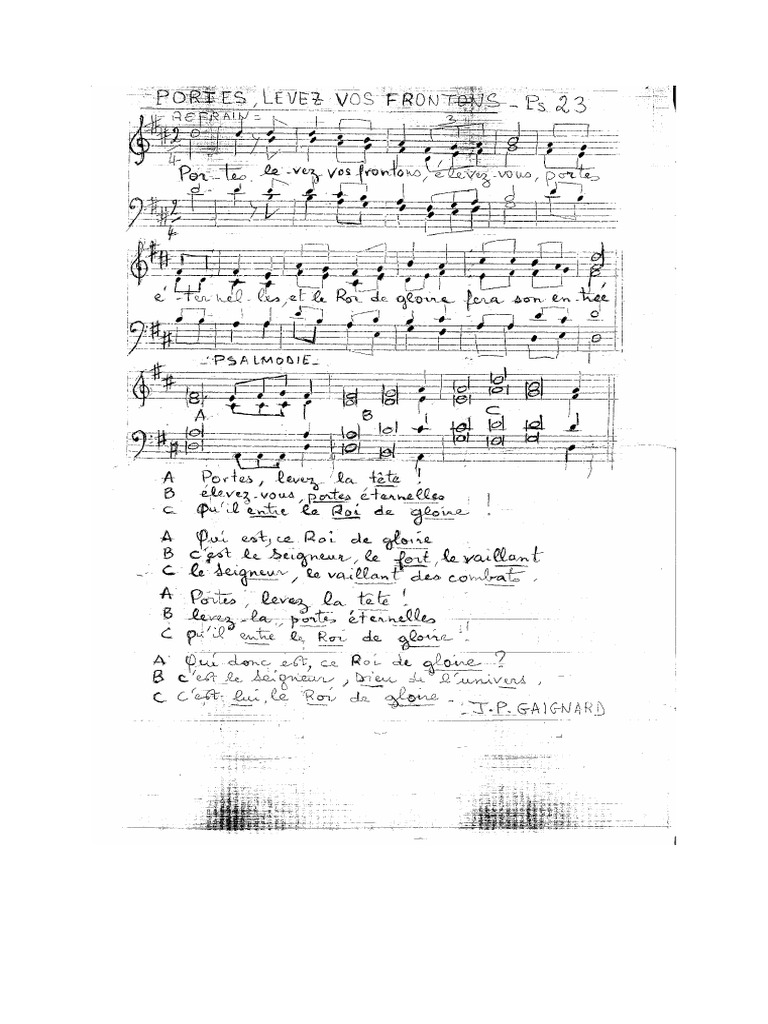 PORTES, LEVEZ VOS FRONTONS - Ps. 23
REFRAIN =
2
4
3
Por-tes, le-vez vos frontons, élevez-vous, portes
2
4
é-ter-nel-les, et le Roi de gloire fera son en-trée
- PSALMODIE -
A B C
A Portes, levez la tête !
B élevez-vous, portes éternelles
C Qu'il entre le Roi de gloire !
A Qui est, ce Roi de gloire
B c'est le Seigneur, le fort, le vaillant
C le Seigneur, le vaillant des combats.
A Portes, levez la tête !
B levez-la, portes éternelles
C qu'il entre le Roi de gloire !
A Qui donc est, ce Roi de gloire ?
B c'est le Seigneur, Dieu de l'univers,
C C'est lui, le Roi de gloire -
J.P. GAIGNARD